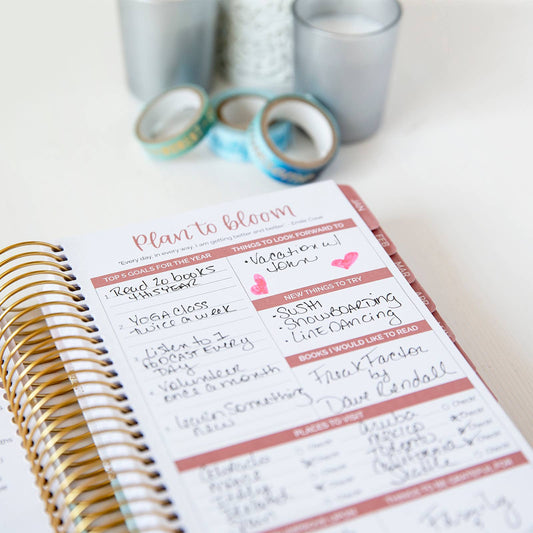 Plan to bloom
"Every day, in every way, I am getting better and better" - Emile Coué
TOP 5 GOALS FOR THE YEAR
Read 20 books
this year
YOGA Class
twice a week
Listen to 1
PODCAST Every
DAY
Volunteer
once a month
Learn Something
new
THINGS TO LOOK FORWARD TO
• Vacation w/
John
NEW THINGS TO TRY
• SUSHI
• Snowboarding
• Line Dancing
BOOKS I WOULD LIKE TO READ
Freak Factor
by
Dave Rendall
PLACES TO VISIT
Aruba
Mexico
Seattle
THINGS TO BE GRATEFUL FOR
Family
JAN
FEB
MAR
APR